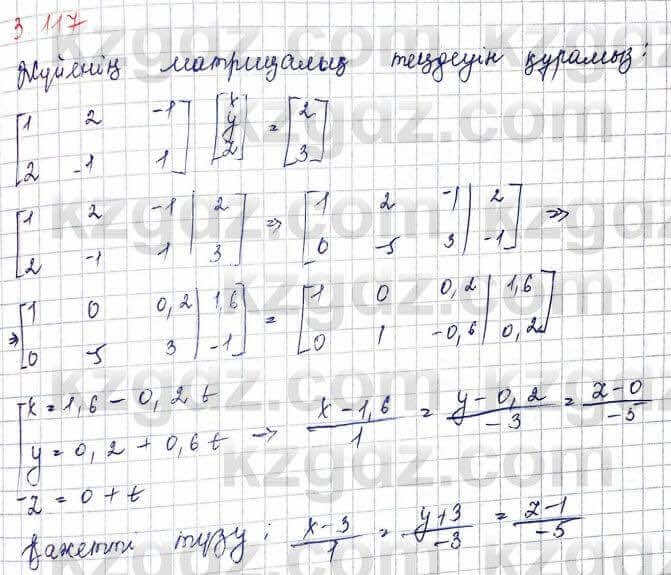 3 117
kzgdz.com
Жүйенің матрицалық теңдеуін құрамыз:
[1 2 -1; 2 -1 1] [x; y; z] = [2; 3]
[1 2 -1 | 2; 2 -1 1 | 3] => [1 2 -1 | 2; 0 -5 3 | -1] =>
=> [1 0 0,2 | 1,6; 0 -5 3 | -1] = [1 0 0,2 | 1,6; 0 1 -0,6 | 0,2]
x = 1,6 - 0,2 t
y = 0,2 + 0,6 t -> (x-1,6)/1 = (y-0,2)/-3 = (z-0)/-5
z = 0 + t
Қажетті түзу: (x-3)/1 = (y+3)/-3 = (z-1)/-5